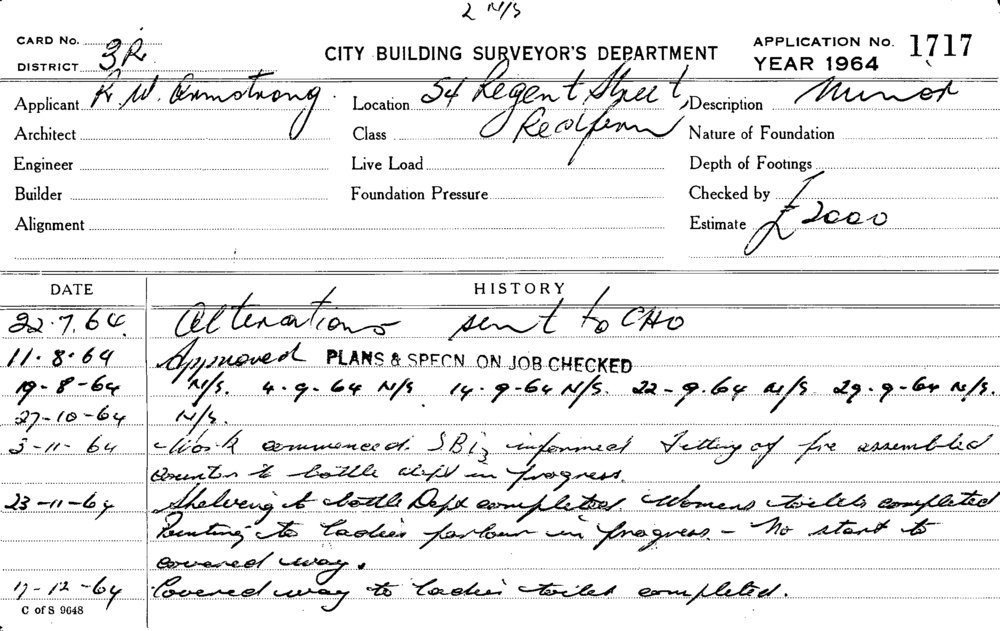 2 N/S
CARD No.
DISTRICT 3R
CITY BUILDING SURVEYOR'S DEPARTMENT
APPLICATION No. 1717
YEAR 1964
Applicant R. W. Armstrong
Location 54 Regent Street,
Redfern
Description Minor
Architect
Class
Nature of Foundation
Engineer
Live Load
Depth of Footings
Builder
Foundation Pressure
Checked by
Alignment
Estimate £2000
DATE HISTORY
22.7.64. Alterations sent to CHO
11.8.64 Approved PLANS & SPECN ON JOB CHECKED
19-8-64 N/S. 4.9.64 N/S 14.9-64 N/S. 22-9.64 N/S. 29.9-64 N/S.
27-10-64 N/S.
3-11-64 Work commenced. informed Fitting of pre assembled
counter to bottle dept in progress.
23-11-64 Shelving to bottle Dept completed Womens toilets completed
Painting to ladies parlour in progress - No start to
covered way.
17-12-64 Covered way to ladies toilet completed.
C of S 9648